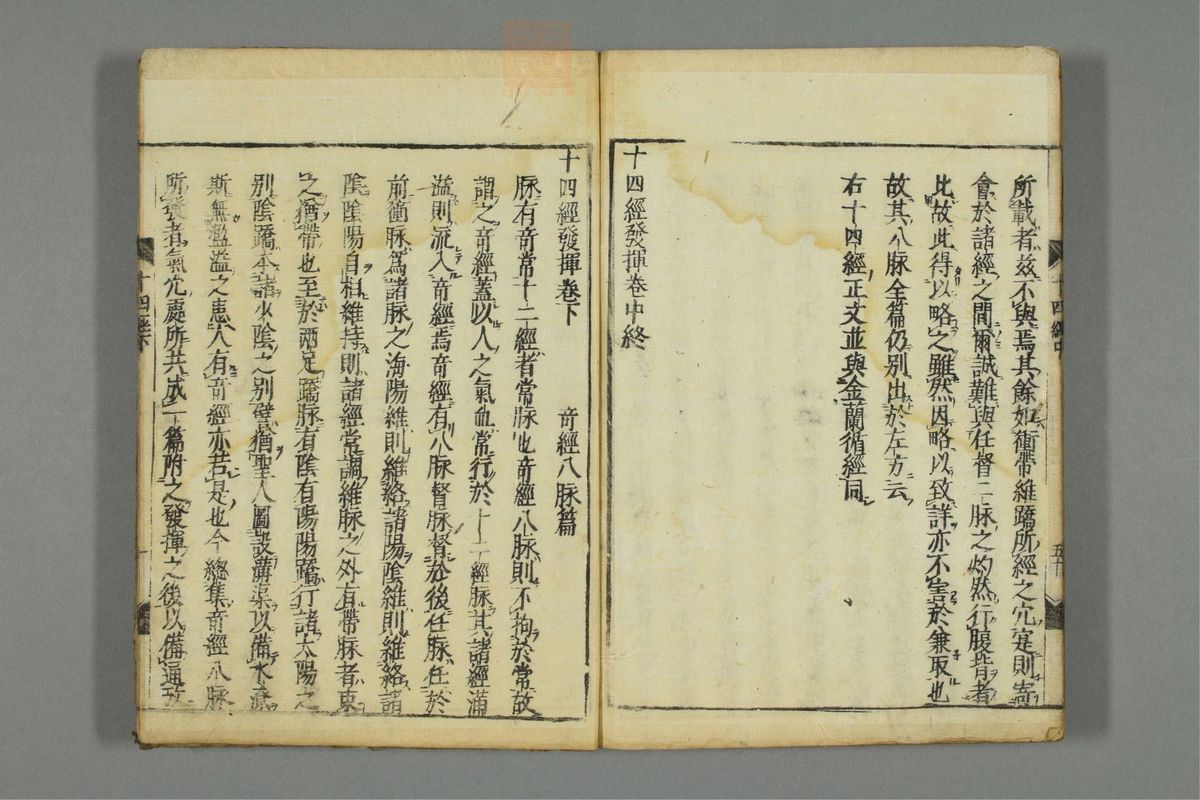 所載者茲不與焉其餘如衝帶維蹻所經之穴寔則寄
會於諸經之間爾誠難與任督二脉之灼然行腹背者
比故此得以略之雖然因略以致詳亦不害於兼取也
故其八脉全篇仍別出於左方云
右十四經正文並與金蘭循經同
十四經發揮卷中終
十四經發揮卷下 奇經八脉篇
脉有奇常十二經者常脉也奇經八脉則不拘於常故
謂之奇經蓋以人之氣血常行於十二經脉其諸經滿
溢則流入奇經焉奇經有八脉督脉督於後任脉任於
前衝脉爲諸脉之海陽維則維絡諸陽陰維則維絡諸
陰陰陽自相維持則諸經常調維脉之外有帶脉者束
之猶帶也至於兩足蹻脉有陰有陽陽蹻行諸太陽之
別陰蹻本諸少陰之別譬猶聖人圖設溝渠以備水
斯無濫溢之患人有奇經亦若是也今總集奇經八脉
所發者氣穴處所共成一篇附之發揮之後以備通攷